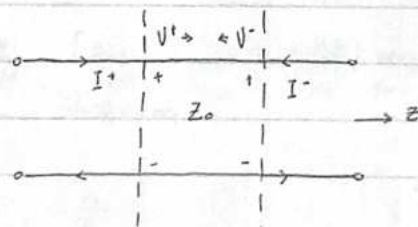 V⁺→ ←V⁻
I⁺ + + I⁻
Z₀ → z
- -